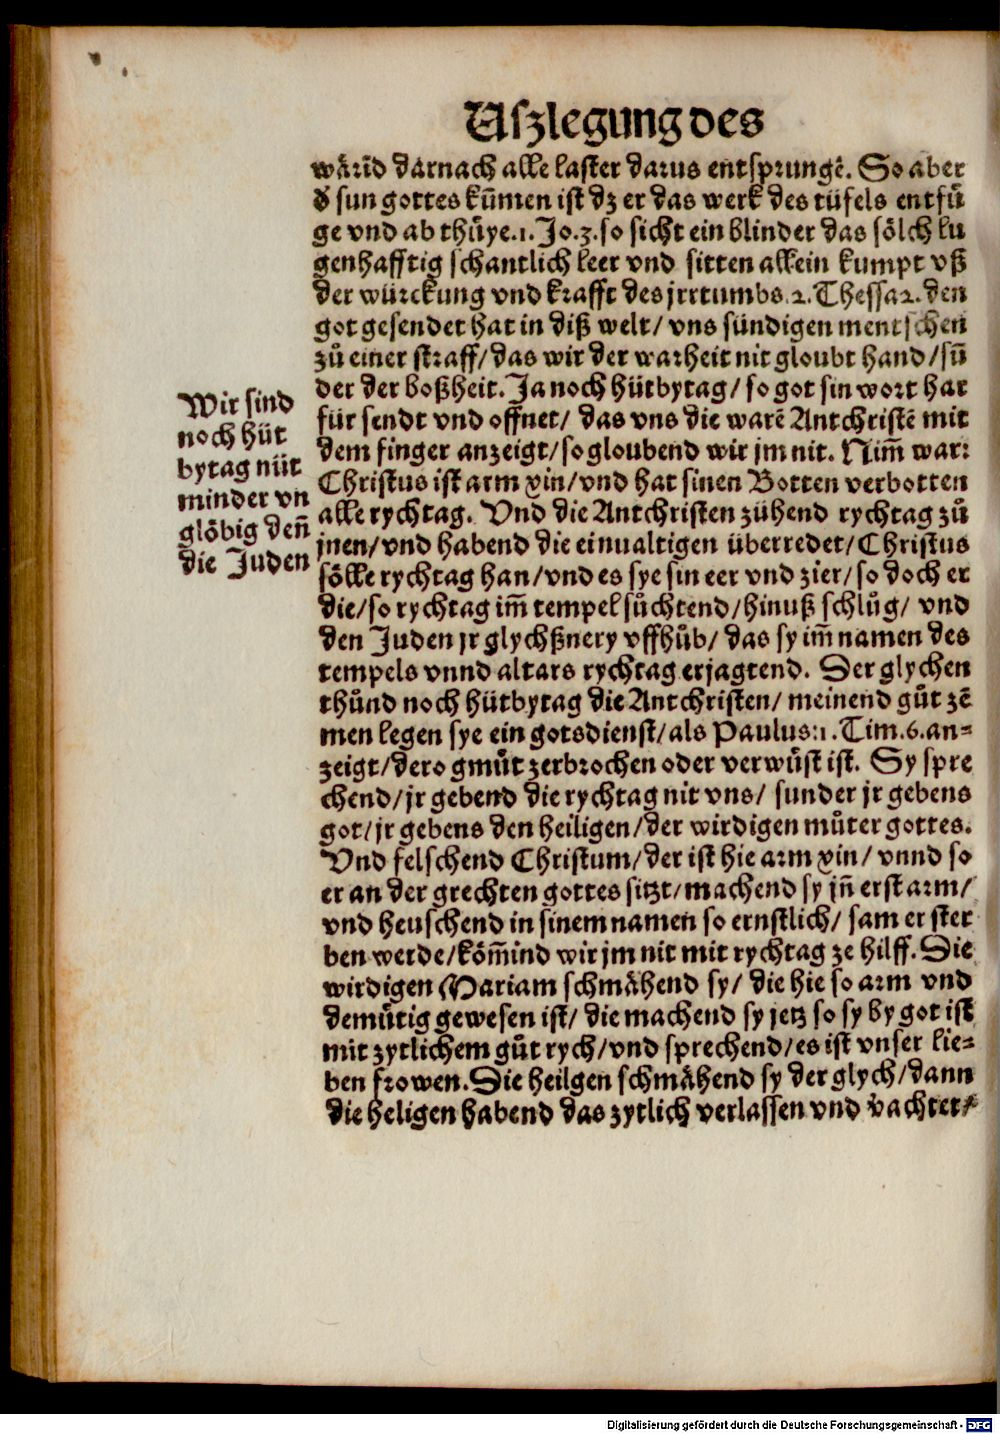 Uſzlegung des
wåriñd darnach alle laster darus entsprungē. So aber
d̓ sun gottes kum̄en ist dz er das werk des tüfels entfů
ge vnd ab thůye.1. Jo.3. so sicht ein blinder das sölch lu
genhafftig schantlich leer vnd sitten allein kumpt vß
der würckung vnd krafft des jrrtumbs. 2. Thessa 2. den
got gesendet hat in diß welt/ vns sündigen mentschen
zů einer straff/ das wir der warheit nit gloubt hand/ sun̄
der der boßheit. Ja noch hütbytag/ so got sin wort hat
für sendt vnd offnet/ das vns die warē Antchristē mit
dem finger anzeigt/ so gloubend wir jm nit. Nim̄ war:
Christus ist arm xin/ vnd hat sinen Botten verbotten
alle rychtag. Vnd die Antchristen zühend rychtag zů
jnen/ vnd habend die einualtigen überredet/ Christus
sölle rychtag han/ vnd es sye sin eer vnd zier/ so doch er
die/ so rychtag im̄ tempel sůchtend/ hinuß schlůg/ vnd
den Juden jr glychßnery vffhůb/ das sy im̄ namen des
tempels vnnd altars rychtag erjagtend. Der glychen
thůnd noch hütbytag die Antchristen/ meinend gůt zē
men legen sye ein gotsdienst/ als Paulus:1. Tim.6. an⸗
zeigt/ dero gmůt zerbrochen oder verwůst ist. Sy spre
chend/ jr gebend die rychtag nit vns/ sunder jr gebens
got/ jr gebens den heiligen/ der wirdigen můter gottes.
Vnd felschend Christum/ der ist hie arm xin/ vnnd so
er an der grechten gottes sitzt/ machend sy jn̄ erst arm/
vnd heuschend in sinem namen so ernstlich/ sam er ster
ben werde/ köm̄ind wir jm nit mit rychtag ze hilff. Die
wirdigen Mariam schmåhend sy/ die hie so arm vnd
demůtig gewesen ist/ die machend sy jetz so sy by got ist
mit zytlichem gůt rych/ vnd sprechend/ es ist vnser lie⸗
ben frowen. Die heilgen schmåhend sy der glych/ dann
die heligen habend das zytlich verlassen vnd vachtet/
Wir sind
noch hüt
bytag nüt
minder vn
glöbig den̄
die Juden
Digitalisierung gefördert durch die Deutsche Forschungsgemeinschaft - DFG